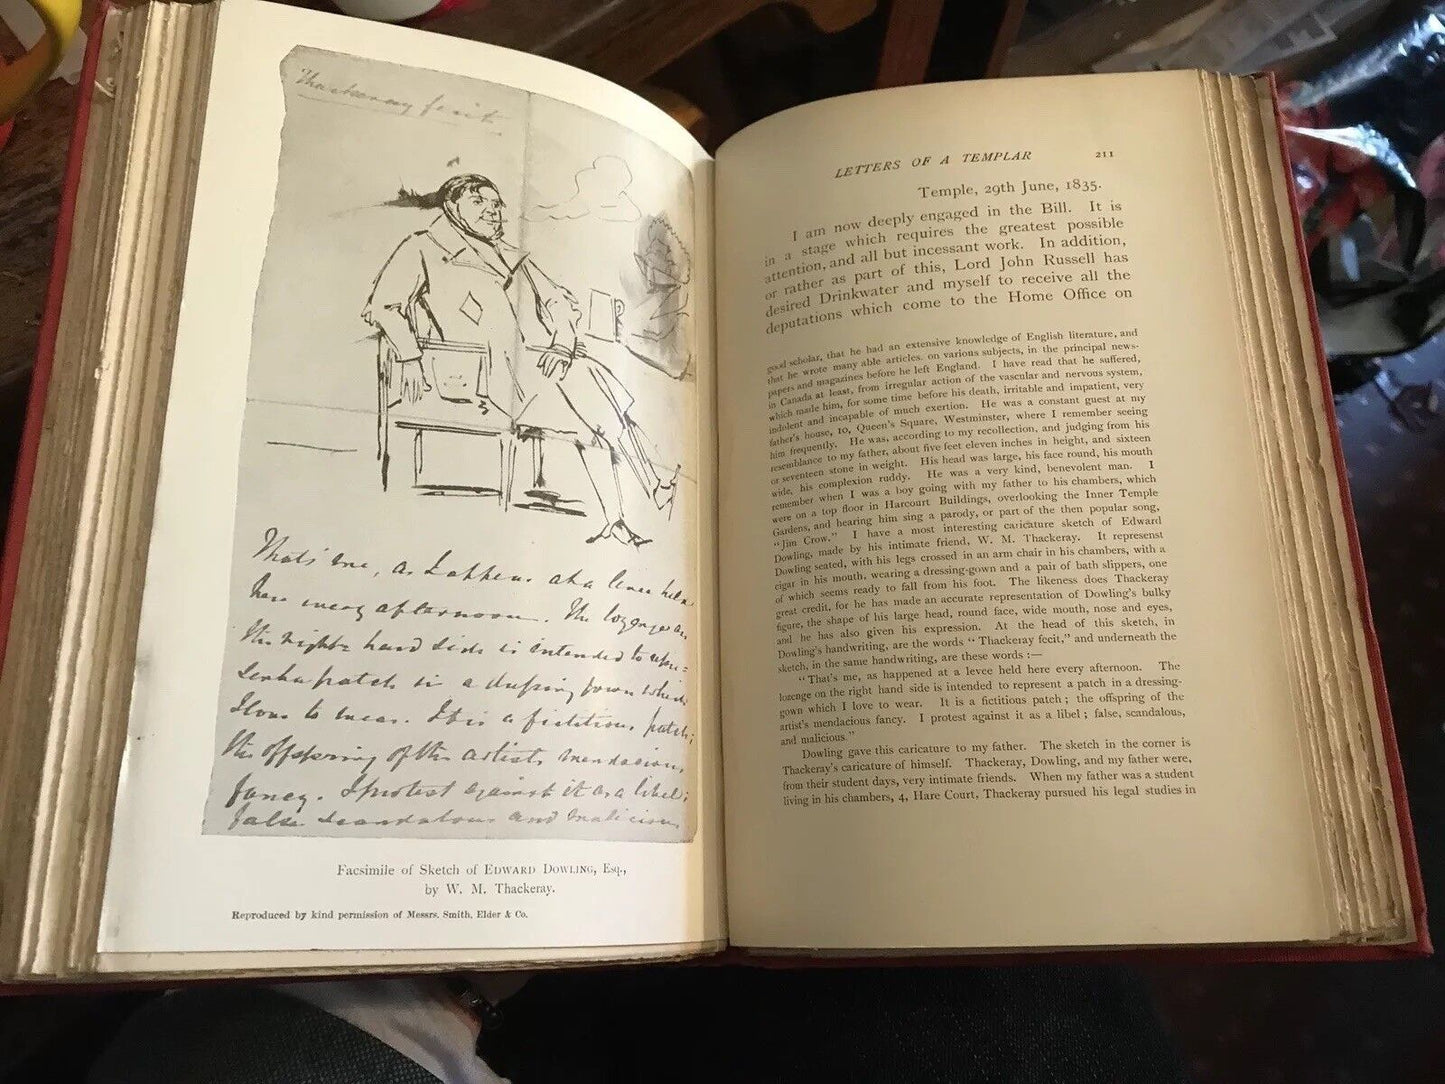 Thackeray fecit
That's me, as I appear at a levee held
here every afternoon. The lozenge on
the right hand side is intended to repre=
sent a patch in a dressing gown which
I love to wear. It is a fictitious patch;
the offspring of the artist's mendacious
fancy. I protest against it as a libel;
false scandalous and malicious
Facsimile of Sketch of EDWARD DOWLING, Esq.,
by W. M. Thackeray.
Reproduced by kind permission of Messrs. Smith, Elder & Co.
LETTERS OF A TEMPLAR 211
Temple, 29th June, 1835.
I am now deeply engaged in the Bill. It is
in a stage which requires the greatest possible
attention, and all but incessant work. In addition,
or rather as part of this, Lord John Russell has
desired Drinkwater and myself to receive all the
deputations which come to the Home Office on
good scholar, that he had an extensive knowledge of English literature, and
that he wrote many able articles. on various subjects, in the principal news-
papers and magazines before he left England. I have read that he suffered,
in Canada at least, from irregular action of the vascular and nervous system,
which made him, for some time before his death, irritable and impatient, very
indolent and incapable of much exertion. He was a constant guest at my
father's house, 10, Queen's Square, Westminster, where I remember seeing
him frequently. He was, according to my recollection, and judging from his
resemblance to my father, about five feet eleven inches in height, and sixteen
or seventeen stone in weight. His head was large, his face round, his mouth
wide, his complexion ruddy. He was a very kind, benevolent man. I
remember when I was a boy going with my father to his chambers, which
were on a top floor in Harcourt Buildings, overlooking the Inner Temple
Gardens, and hearing him sing a parody, or part of the then popular song,
"Jim Crow." I have a most interesting caricature sketch of Edward
Dowling, made by his intimate friend, W. M. Thackeray. It represenst
Dowling seated, with his legs crossed in an arm chair in his chambers, with a
cigar in his mouth, wearing a dressing-gown and a pair of bath slippers, one
of which seems ready to fall from his foot. The likeness does Thackeray
great credit, for he has made an accurate representation of Dowling's bulky
figure, the shape of his large head, round face, wide mouth, nose and eyes,
and he has also given his expression. At the head of this sketch, in
Dowling's handwriting, are the words "Thackeray fecit," and underneath the
sketch, in the same handwriting, are these words :—
"That's me, as happened at a levee held here every afternoon. The
lozenge on the right hand side is intended to represent a patch in a dressing-
gown which I love to wear. It is a fictitious patch ; the offspring of the
artist's mendacious fancy. I protest against it as a libel ; false, scandalous,
and malicious."
Dowling gave this caricature to my father. The sketch in the corner is
Thackeray's caricature of himself. Thackeray, Dowling, and my father were,
from their student days, very intimate friends. When my father was a student
living in his chambers, 4, Hare Court, Thackeray pursued his legal studies in